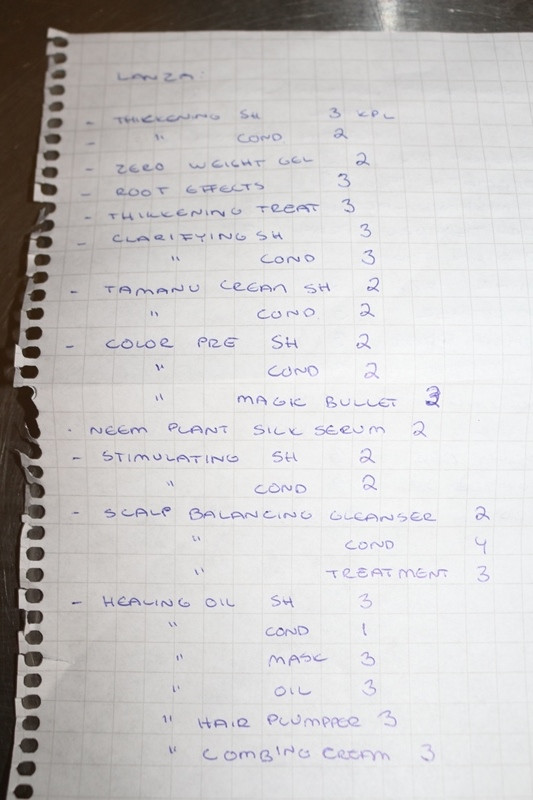 LANZA:
- THICKENING SH 3 KPL
- " COND 2
- ZERO WEIGHT GEL 2
- ROOT EFFECTS 3
- THICKENING TREAT 3
- CLARIFYING SH 3
" COND 3
- TAMANU CREAM SH 2
" COND. 2
- COLOR PRE SH 2
" COND 2
" MAGIC BULLET
- NEEM PLANT SILK SERUM 2
- STIMULATING SH 2
" COND 2
- SCALP BALANCING CLEANSER 2
" COND 4
" TREATMENT 3
- HEALING OIL SH 3
" COND 1
" MASK 3
" OIL 3
" HAIR PLUMPPER 3
" COMBING CREAM 3